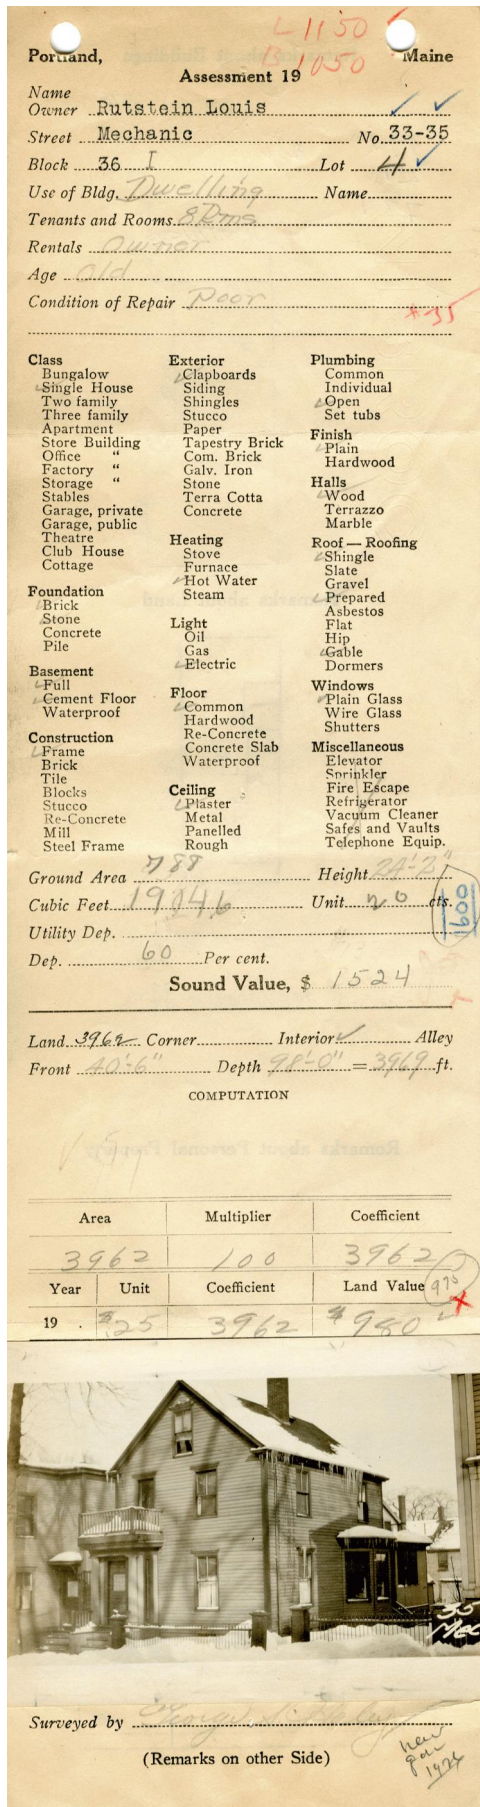 L 1150
B 1050
Portland, Maine
Assessment 19
Name
Owner Rutstein Louis
Street Mechanic No. 33-35
Block 36 I Lot 4
Use of Bldg. Dwelling Name
Tenants and Rooms 8 Rms
Rentals Owner
Age old
Condition of Repair Poor
+35
Class
Bungalow
Single House
Two family
Three family
Apartment
Store Building
Office "
Factory "
Storage "
Stables
Garage, private
Garage, public
Theatre
Club House
Cottage
Foundation
Brick
Stone
Concrete
Pile
Basement
Full
Cement Floor
Waterproof
Construction
Frame
Brick
Tile
Blocks
Stucco
Re-Concrete
Mill
Steel Frame
Exterior
Clapboards
Siding
Shingles
Stucco
Paper
Tapestry Brick
Com. Brick
Galv. Iron
Stone
Terra Cotta
Concrete
Heating
Stove
Furnace
Hot Water
Steam
Light
Oil
Gas
Electric
Floor
Common
Hardwood
Re-Concrete
Concrete Slab
Waterproof
Ceiling
Plaster
Metal
Panelled
Rough
Plumbing
Common
Individual
Open
Set tubs
Finish
Plain
Hardwood
Halls
Wood
Terrazzo
Marble
Roof — Roofing
Shingle
Slate
Gravel
Prepared
Asbestos
Flat
Hip
Gable
Dormers
Windows
Plain Glass
Wire Glass
Shutters
Miscellaneous
Elevator
Sprinkler
Fire Escape
Refrigerator
Vacuum Cleaner
Safes and Vaults
Telephone Equip.
Ground Area 788 Height 24'-2"
Cubic Feet 19046 Unit 20 cts.
1600
Utility Dep.
Dep. 60 Per cent.
Sound Value, $ 1524
Land 3962 Corner Interior Alley
Front 40'-6" Depth 98'-0" = 3969 ft.
COMPUTATION
Area Multiplier Coefficient
3962 100 3962
Year Unit Coefficient Land Value 975
19 . $.25 3962 $980
35
Mec
Surveyed by George
(Remarks on other Side)
new
gar
1926